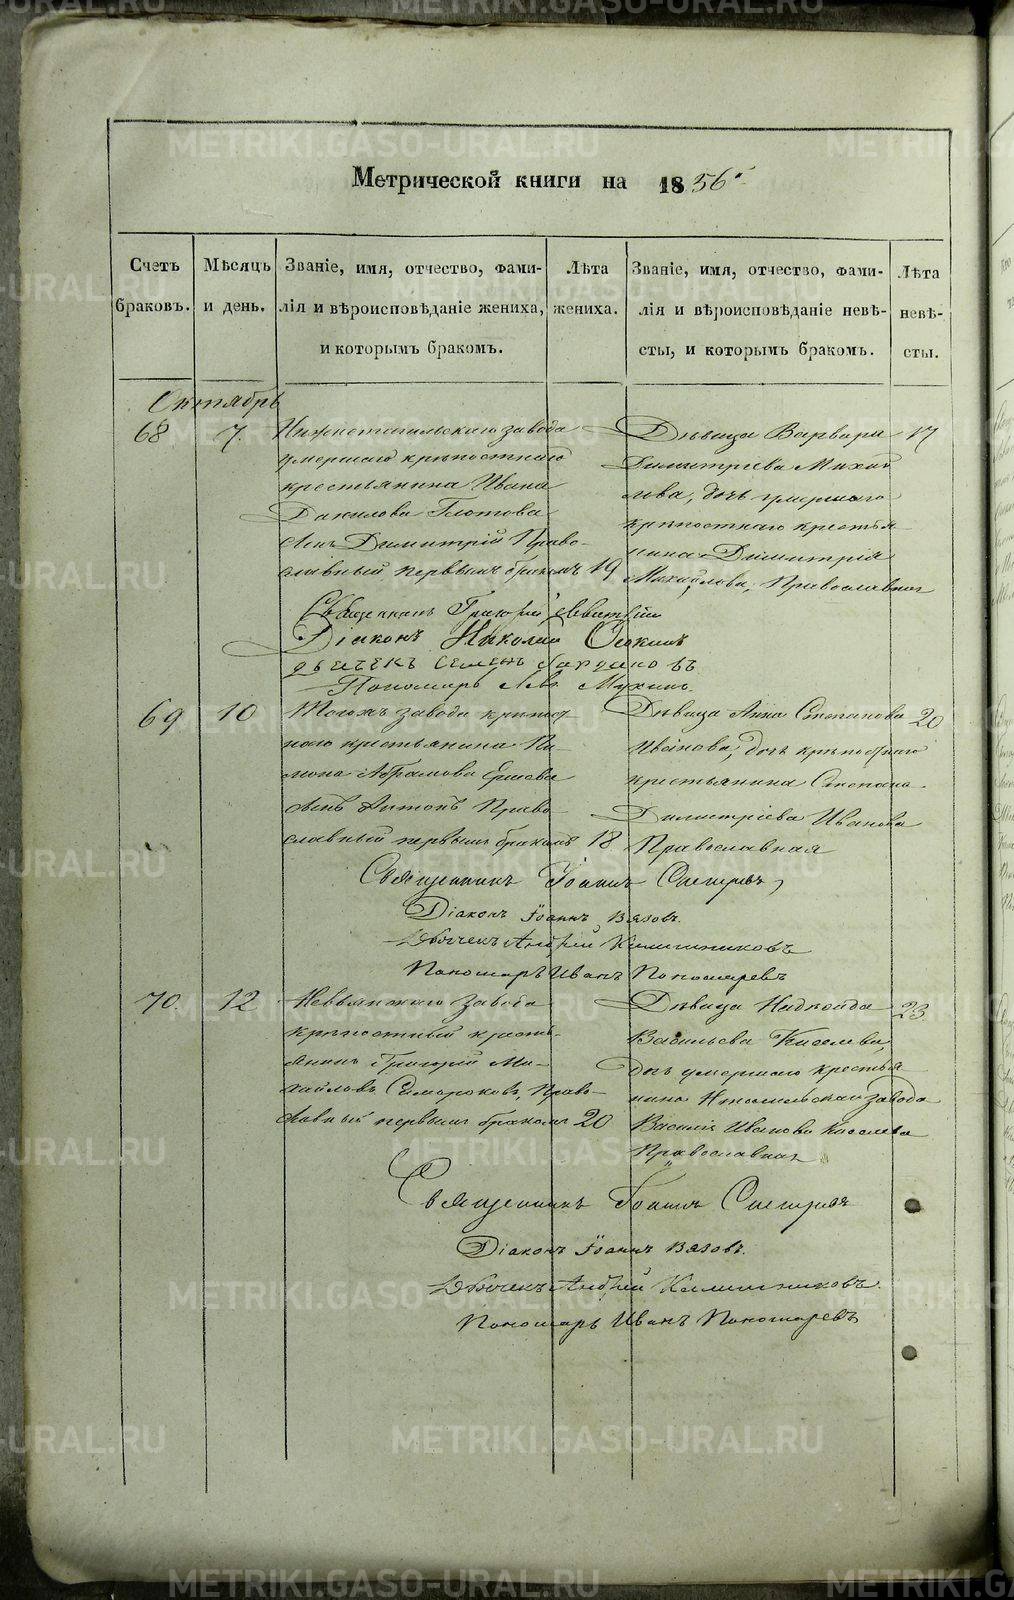 Метрической книги на 1856.
Счетъ браковъ.
Мѣсяцъ и день.
Званіе, имя, отчество, фамилія и вѣроисповѣданіе жениха, и которымъ бракомъ.
Лѣта жениха.
Званіе, имя, отчество, фамилія и вѣроисповѣданіе невѣсты, и которымъ бракомъ.
Лѣта невѣсты.
Октябрь
68
7.
Нижнетагильскаго завода
умершаго крѣпостнаго
крестьянина Ивана
Данилова
сынъ Димитрій Право-
славный первымъ бракомъ
19
Дѣвица Варвара
Димитріева Михай
лова, дочь умершаго
крѣпостнаго крестья
нина Димитрія
Михайлова, Православная
17
Священникъ Григорій
Діаконъ Николай
дьячекъ Семенъ
Пономарь Левъ Мухинъ
69
10
Тогожъ завода крѣпост
наго крестьянина
Абрамова Ершева
сынъ Антонъ Право
славный первымъ бракомъ
18
Дѣвица Анна Степанова
Иванова, дочь крѣпостнаго
крестьянина Степана
Димитріева Иванова
Православная
20
Священникъ Іоаннъ
Діаконъ Іоаннъ Вязовъ.
Дьячекъ Андрей
Пономарь Иванъ Пономаревъ
70.
12
Невьянскаго завода
крѣпостный кресть-
янинъ Григорій Ми-
хайловъ Право-
славный первымъ бракомъ
20
Дѣвица Надежда
Васильева Киселева,
дочь умершаго крестья
нина завода
Василія Иванова Киселева
Православная
23
Священникъ Іоаннъ
Діаконъ Іоаннъ Вязовъ.
Дьячекъ Андрей
Пономарь Иванъ Пономаревъ
METRIKI.GASO-URAL.RU